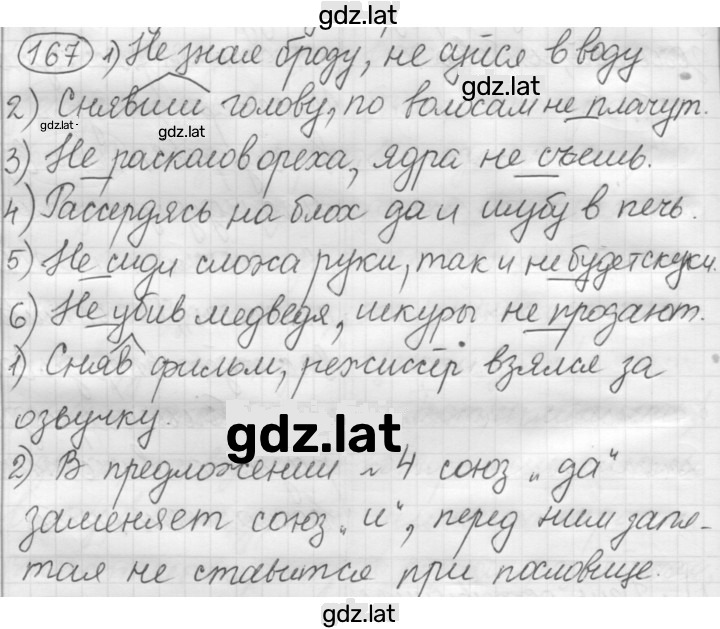 gdz.lat
167 1) Не зная броду, не суйся в воду
gdz.lat
2) Снявши голову, по волосам не плачут.
gdz.lat
gdz.lat
3) Не расколов ореха, ядра не съешь.
4) Рассердясь на блох да и шубу в печь.
5) Не сиди сложа руки, так и не будет скуки.
6) Не убив медведя, шкуры не продают.
1) Сняв фильм, режиссёр взялся за
озвучку.
gdz.lat
2) В предложении ~ 4 союз „да“
заменяет союз „и“, перед ним запя-
тая не ставится при пословице.
gdz.lat